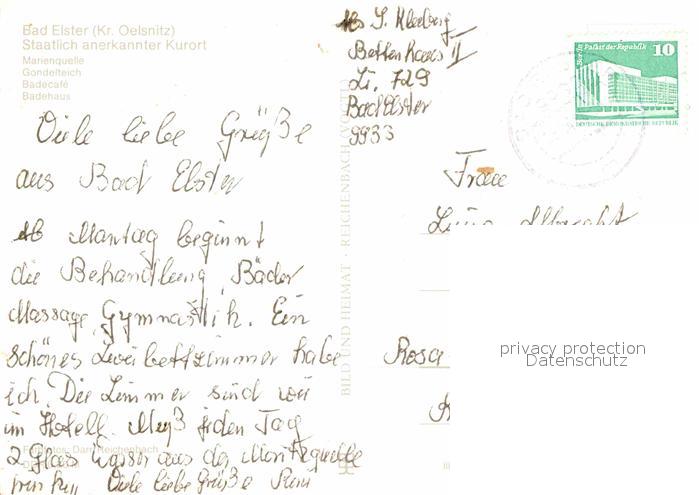 Bad Elster (Kr. Oelsnitz)
Staatlich anerkannter Kurort
Marienquelle
Gondelteich
Badecafé
Badehaus
Viele liebe Grüße
aus Bad Elster
Ab Mantag beginnt
die Behandlung, Bäder
Massage, Gymnastik. Ein
schönes Zweibettzimmer habe
ich. Die Zimmer sind wie
im Hotell. Muß jeden Tag
2 Glas Wasser aus der Moritzquelle
trinken Viele liebe Grüße
Reichenbach
BILD UND HEIMAT · REICHENBACH
Abs S.
Bettenhaus II
Zi. 729
Bad Elster
9933
Berlin Palast der Republik
10
DEUTSCHE DEMOKRATISCHE REPUBLIK
Frau
Rosa
privacy protection
Datenschutz